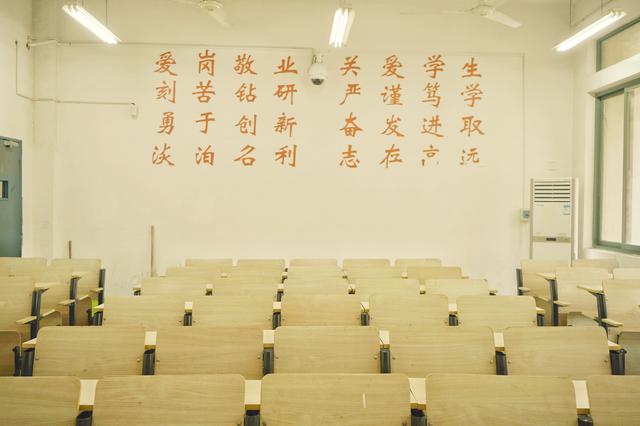 爱岗敬业
刻苦钻研
勇于创新
淡泊名利
关爱学生
严谨笃学
奋发进取
志在高远